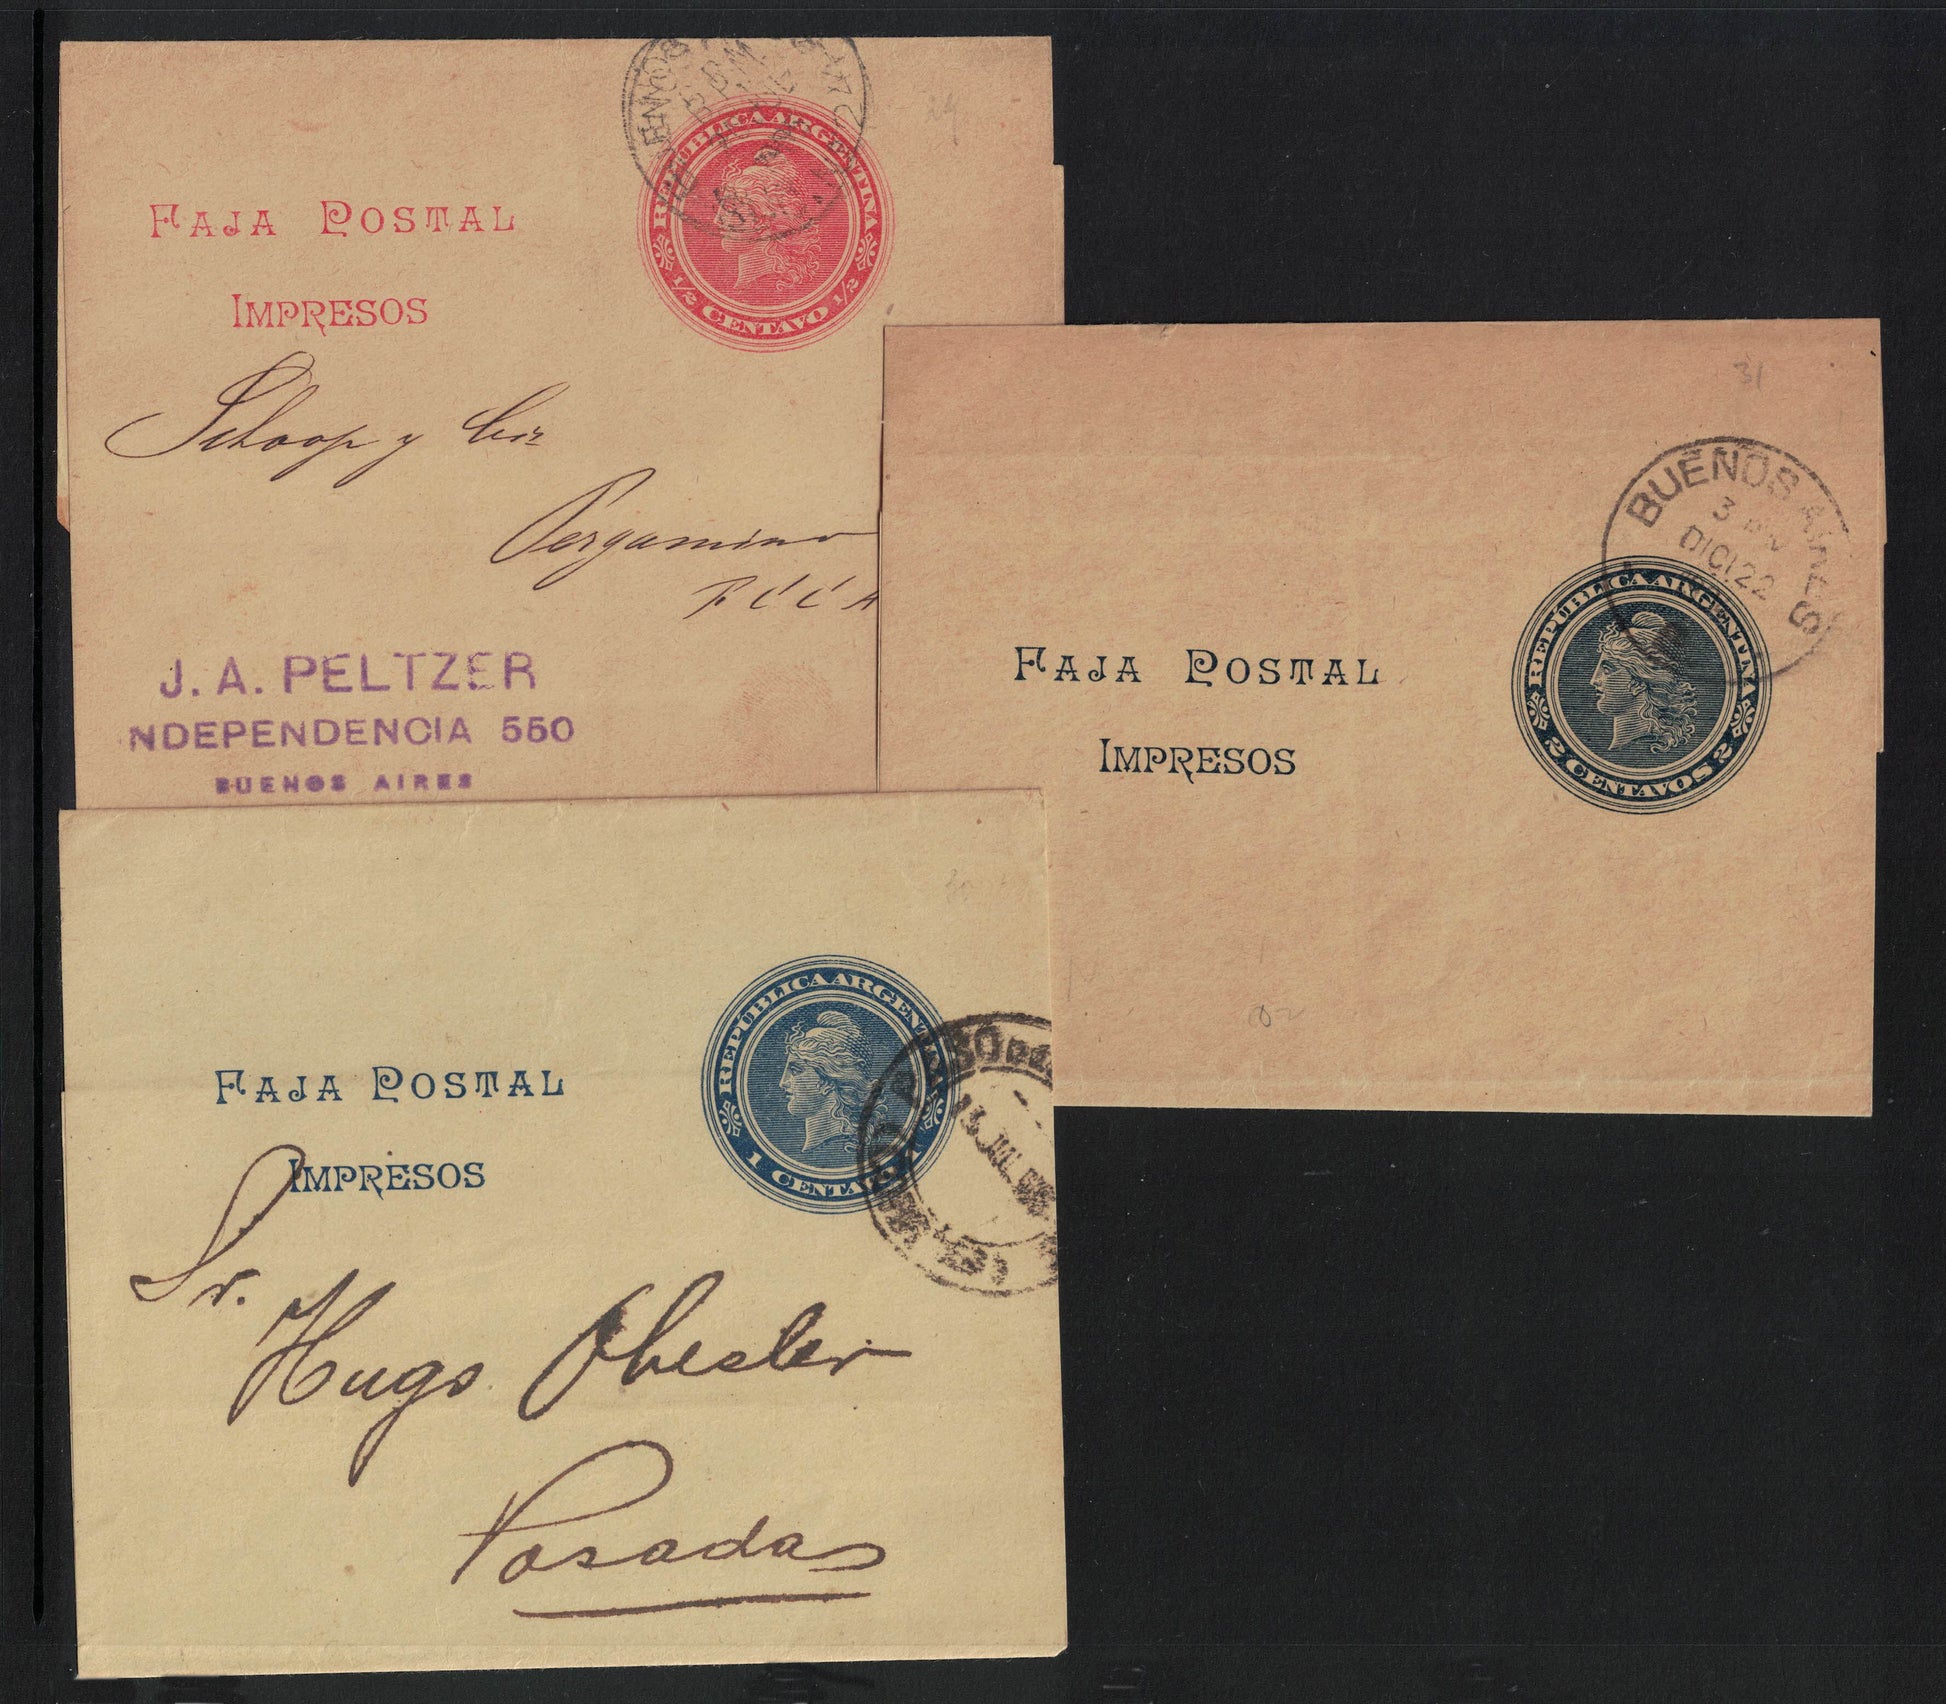 29
BUENOS
REPÚBLICA ARGENTINA
1/2 CENTAVO 1/2
FAJA POSTAL
IMPRESOS
Schoop y Cia
Pergamino
F C C A
J. A. PELTZER
NDEPENDENCIA 550
BUENOS AIRES
31
BUENOS AIRES
3
DIC 22
REPÚBLICA ARGENTINA
2 CENTAVOS 2
FAJA POSTAL
IMPRESOS
30
REPÚBLICA ARGENTINA
1 CENTAVO 1
JUL
FAJA POSTAL
IMPRESOS
Sr.
Hugo Obester
Posadas